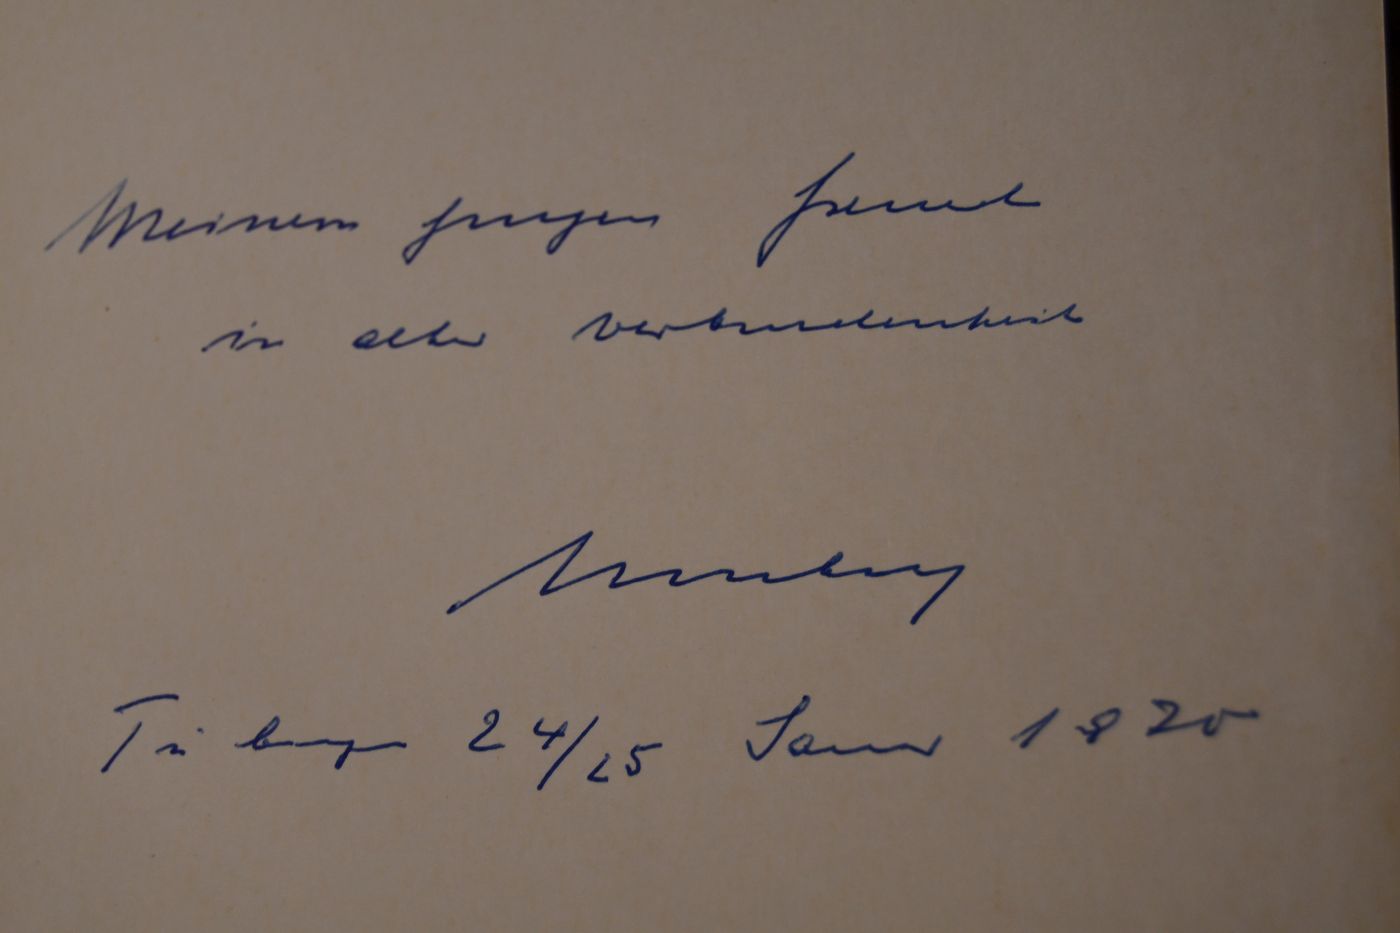 Meinem jungen Freund
in alter Verbundenheit
Tübingen 24/25 Januar